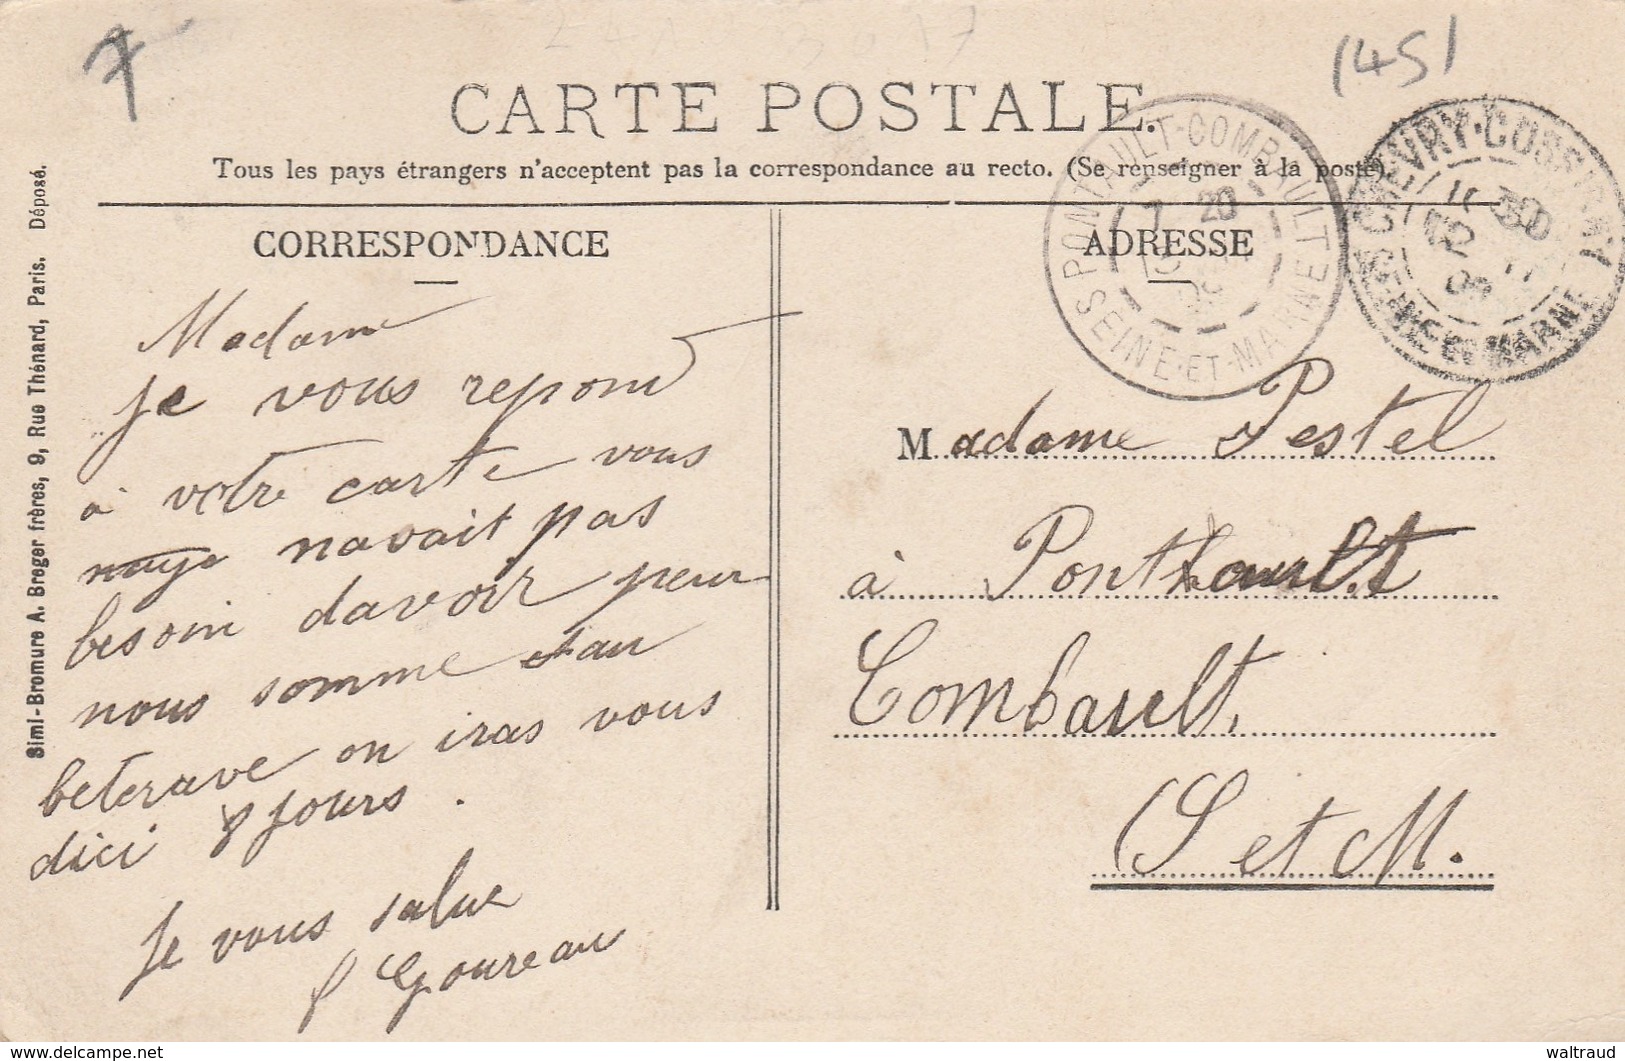 7
(45)
CARTE POSTALE.
Tous les pays étrangers n'acceptent pas la correspondance au recto. (Se renseigner à la poste).
CORRESPONDANCE
ADRESSE
PONTAULT-COMBAULT
SEINE-ET-MARNE
7 20
CHEVRY-COSSIGNY
SEINE-ET-MARNE
Simi-Bromure A. Breger frères, 9, Rue Thénard, Paris. Déposé.
Madame
je vous repond
à votre carte vous
navait pas
besoin davoir peur
nous somme
beterave on iras vous
dici 8 jours.
Je vous salue
Goureau
Madame Pestel
à Pontault
Combault.
(S et M.
waltraud